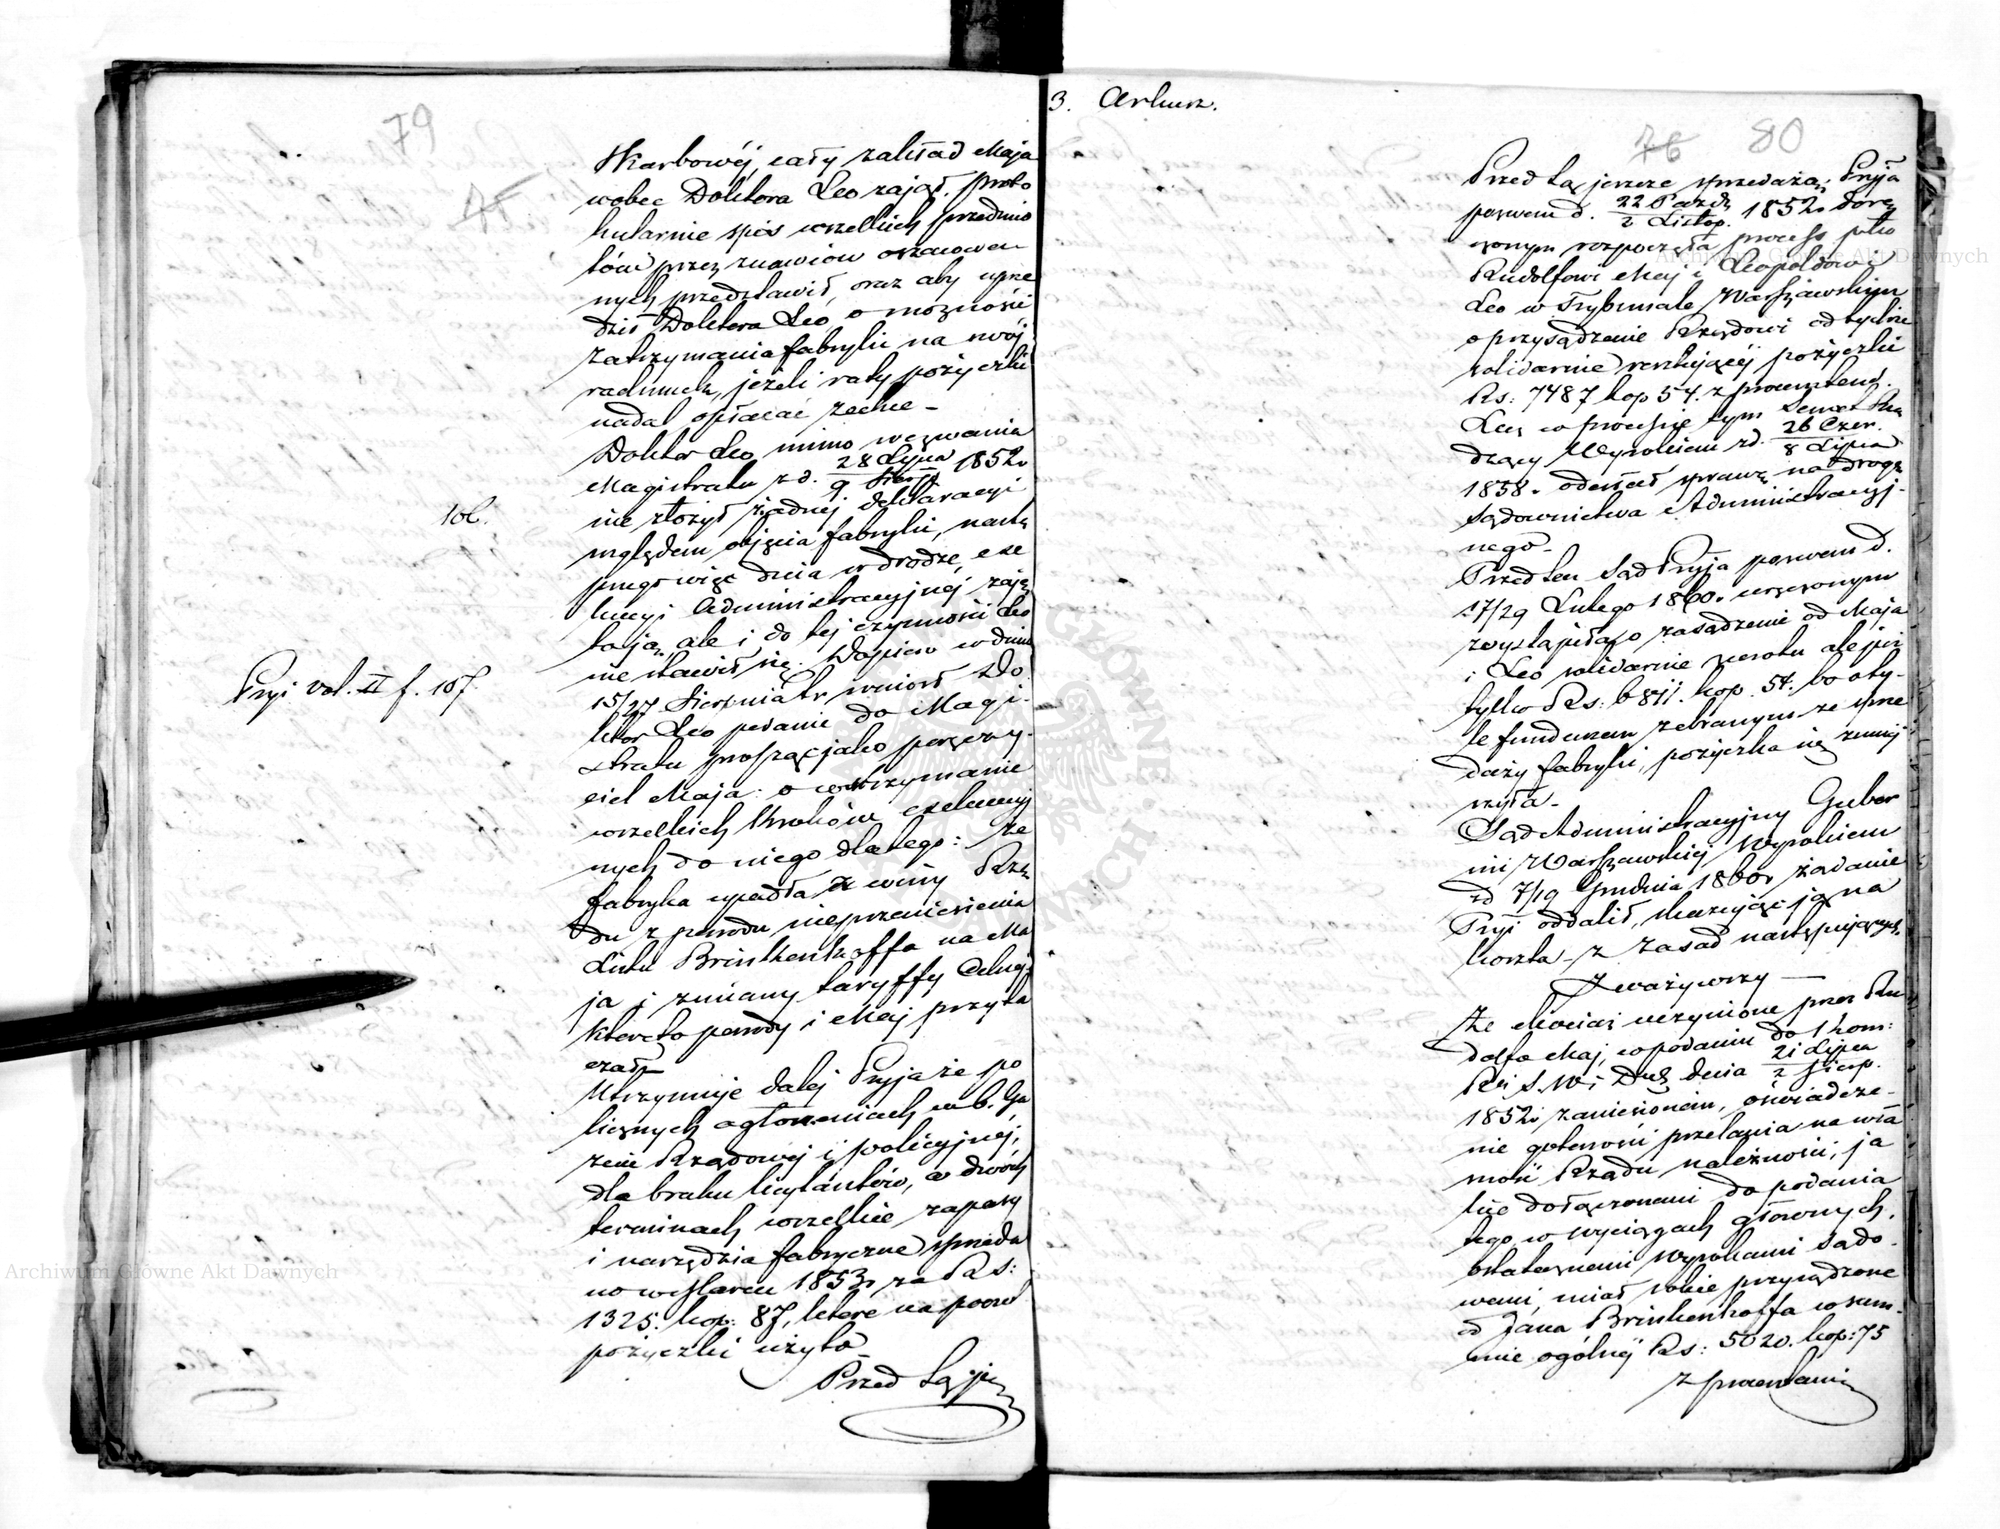 79
Skarbowéj, cały zakład Maja
wobec Doktora Leo zajął, proto
kularnie spis wszelkich przedmio
tów przez znawców oszacowa
nych przedstawił, oraz aby uprze
dził Doktora Leo, o możności
zatrzymania fabryki na swój
rachunek, jeżeli raty pożyczki
nadal opłacać zechce –
Doktor Leo mimo wezwania
Magistratu z d. 28 Lipca / 9 Sierp. 1852 r.
106.
nie złożył żadnéj deklaracyi
względem objęcia fabryki, nastę
pnego więc dnia w drodze, exe
kucyi Administracyjnéj zaję
tą ją, ale i do téj czynności Leo
nie stawił się. Dopiero w dniu
Pryi vol. II f. 107.
15/27 Sierpnia t. r. wniósł Do
ktor Leo podanie do Magi-
stratu prosząc jako poręczy-
ciel Maja: o wstrzymanie
wszelkich kroków exekucyj
nych do niego dlatego: że
fabryka upadła z winy Rzą
du z powodu nieprzeniesienia
Listu Brinkenhoffa na Ma
ja i zmiany taryffy Celnéj,
któreto powody i Maj przyta
czał –
Utrzymuje daléj Pryja że po
licznych ogłoszeniach w b. Ga
zecie Rządowéj i policyjnéj,
dla braku licytantów, w dwóch
terminach wszelkie zapasy
i narzędzia fabryczne sprzeda
no w Marcu 1853 r. za Rs:
1325. kop: 87, które na poczet
pożyczki użyto –
Przed tą je
3. Arkusz.
76 80
Przed tą jeszcze sprzedażą; Pryja
pozwem d. 22 Paźdz. / 3 Listop. 1852 r. dorę
czonym rozpoczęła process prko
Rudolfowi Maj i Leopoldowi
Leo w Trybunale Warszawskim
o przysądzenie Rządowi od tychże
solidarnie resztującéj pożyczki
Rs: 7487 kop 54. z procentem.
Lecz w processie tym Senat Rzą
dzący Wyrokiem z d. 26 Czer. / 8 Lipca
1858 r. odesłał sprawę na drogę
sądownictwa Administracyj-
nego –
Przed ten Sąd Pryja pozwem d.
17/29 Lutego 1860 r. wręczonym
wystąpiła o zasądzenie od Maja
i Leo solidarnie zwrotu ale już
tylko Rs: 6811. kop. 54. bo o ty-
le funduszem zebranym ze sprze
daży fabryki, pożyczka się zmniej
szyła –
Sąd Administracyjny Guber
nii Warszawskiéj Wyrokiem
z d 7/19 Grudnia 1860 r. żądanie
Pryi oddalił, skazując ją na
koszta – z zasad następujących
Zważywszy —
Że chociaż uczynione przez Ru
dolfa Maj, w podaniu do Kom:
Rz: S. W: i Duch. dnia 21 Lipca / 2 Sierp.
1852 r. zaniesionem, oświadcze-
nie gotowości przelania na wła
sność Rządu należności, ja
kie dołączonemi do podania
tego w wyciągach głównych,
ostatecznemi wyrokami sądo-
wemi, miał sobie przysądzone
od Jana Brinkenhoffa w sum-
mie ogólnéj Rs: 5020. kop: 75
z procentami
Archiwum Główne Akt Dawnych
Archiwum Główne Akt Dawnych